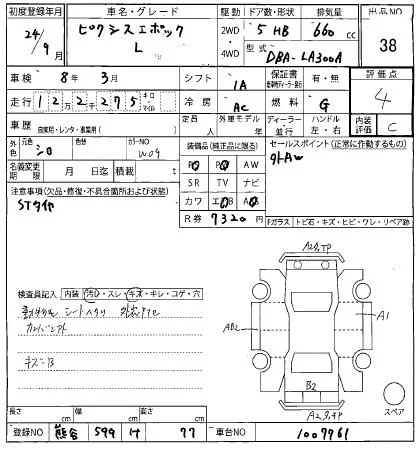 初度登録年月 車名・グレード 駆動 ドア数・形状 排気量 出品NO
24年 9月 ピクシスエポック L 2WD 4WD 5 HB 660 cc 38
型式 DBA-LA300A
車検 8年 3月 シフト IA 保証書 有・無 評価点 4
走行 122千275 キロ・マイル 冷房 AC 燃料 G
車歴 自家用・レンタ・事業用( ) 定員 人 外車モデル 年 ディーラー・並行 ハンドル 左・右 内装評価 C
外色 元色 シロ 色替 カラーNO W09 装備品(純正品に限る) セールスポイント(正常に作動するもの)
名義変更期限 月 日迄 積載 PS PW AW 外AW
SR TV ナビ
注意事項(欠品・修復・不具合箇所および状態) カワ エアB AB
STタイヤ R券 7320 円
Fガラス トビ石・キズ・ヒビ・ワレ・リペア跡
検査員記入 内装 汚れ・スレ・キズ・キレ・コゲ・穴
キズ=B
AB2 A1
B2
スペア
長さ cm 幅 cm 高さ cm
登録NO 熊谷 599 け 77 車台NO 1007961